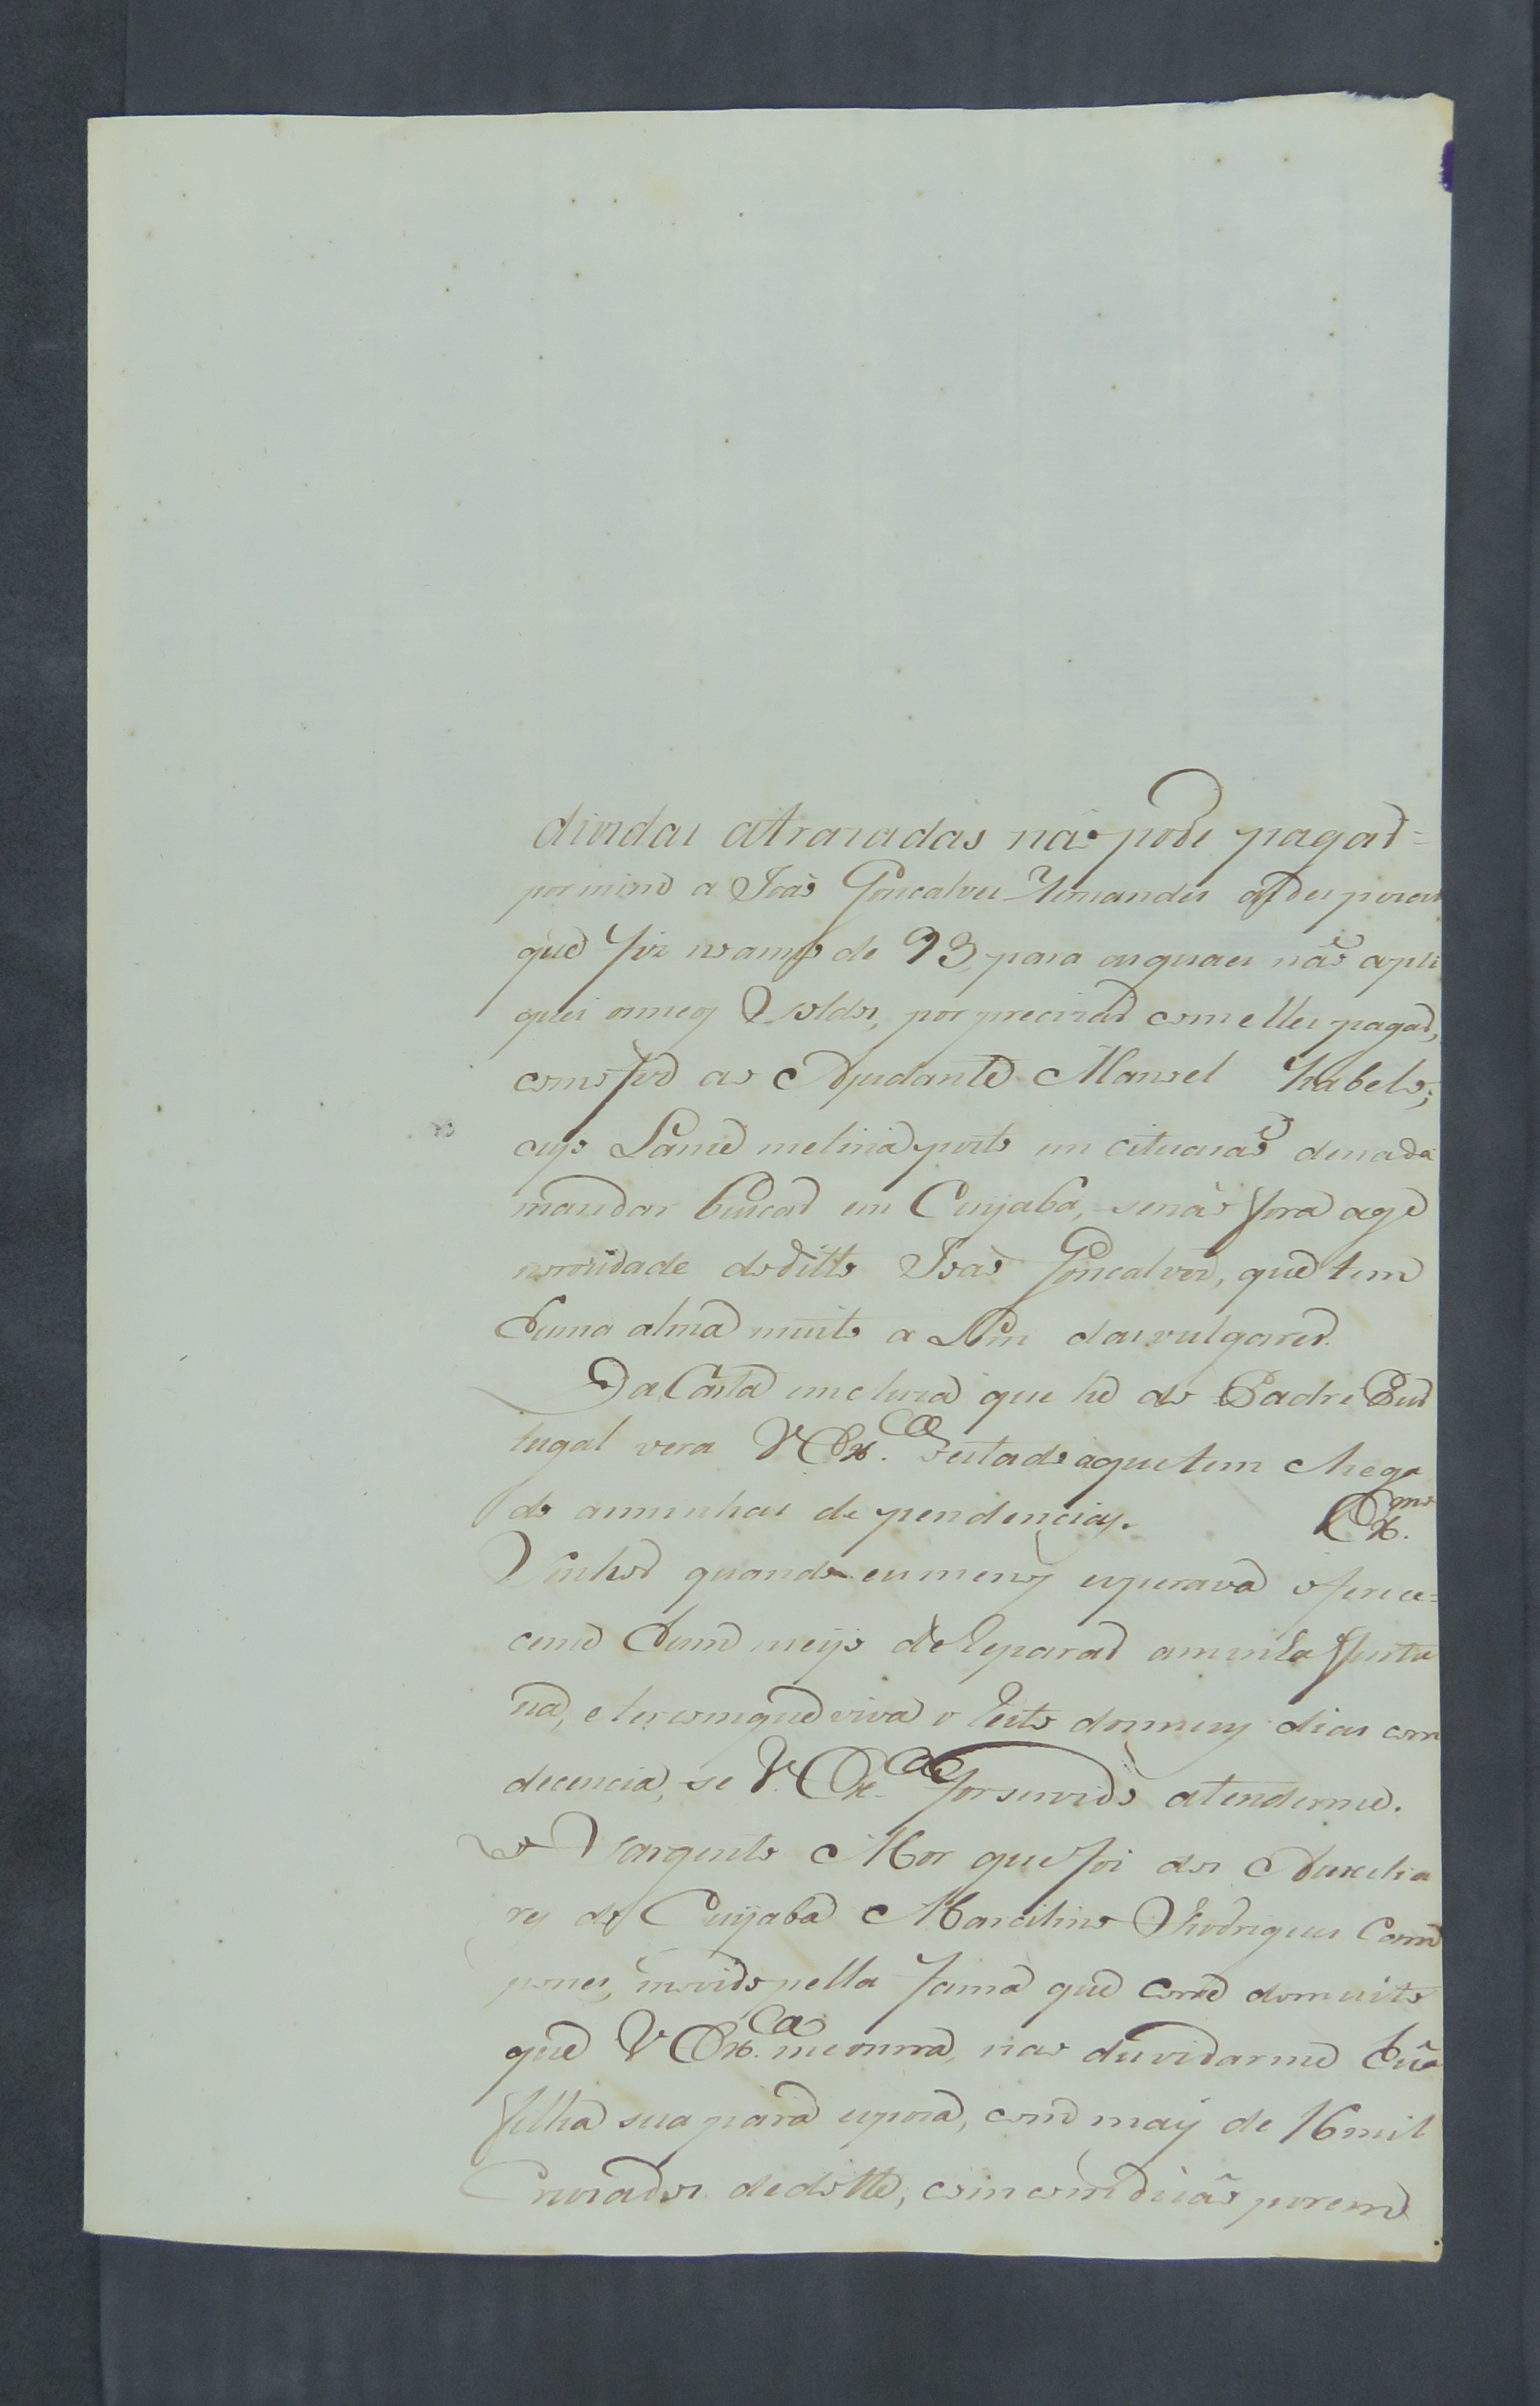 dividas atrazadas não pode pagar=
por mim a João Goncalves Fernandes as despezas
que fiz no anno de 93, para as quaes não apli
quei os meos Soldos, por precizar com elles pagar,
como fiz ao Ajudante Manoel Rabelo;
cujo Lance me teria posto em cituação de nada
mandar buscar em Cuyaba, se não fora age
norozidade do ditto João Goncalves, que tem
huma alma muito a Lem das vulgares.
Da Carta incluza que he do Padre
tugal vera V Ex.ca o estado aque tem chega
do as minhas dependencias. Ex.mo
Senhor quando eu menos esperava ofirice=
ceme hum meyo de Reparar a minha fortu
na, e ter com que viva o Resto dos meus dias com
decencia, se V. Ex.ca for servido atenderme.
o Sargento Mor que foi dos Auxilia
res do Cuyaba Marcilino Rodrigues Cam
pones, movido pella fama que corre do muito
que V Ex.ca me onrra, nao duvidarme huã
filha sua para espoza, com mais de 16 mil
Cruzados de dotte, com comdição porem